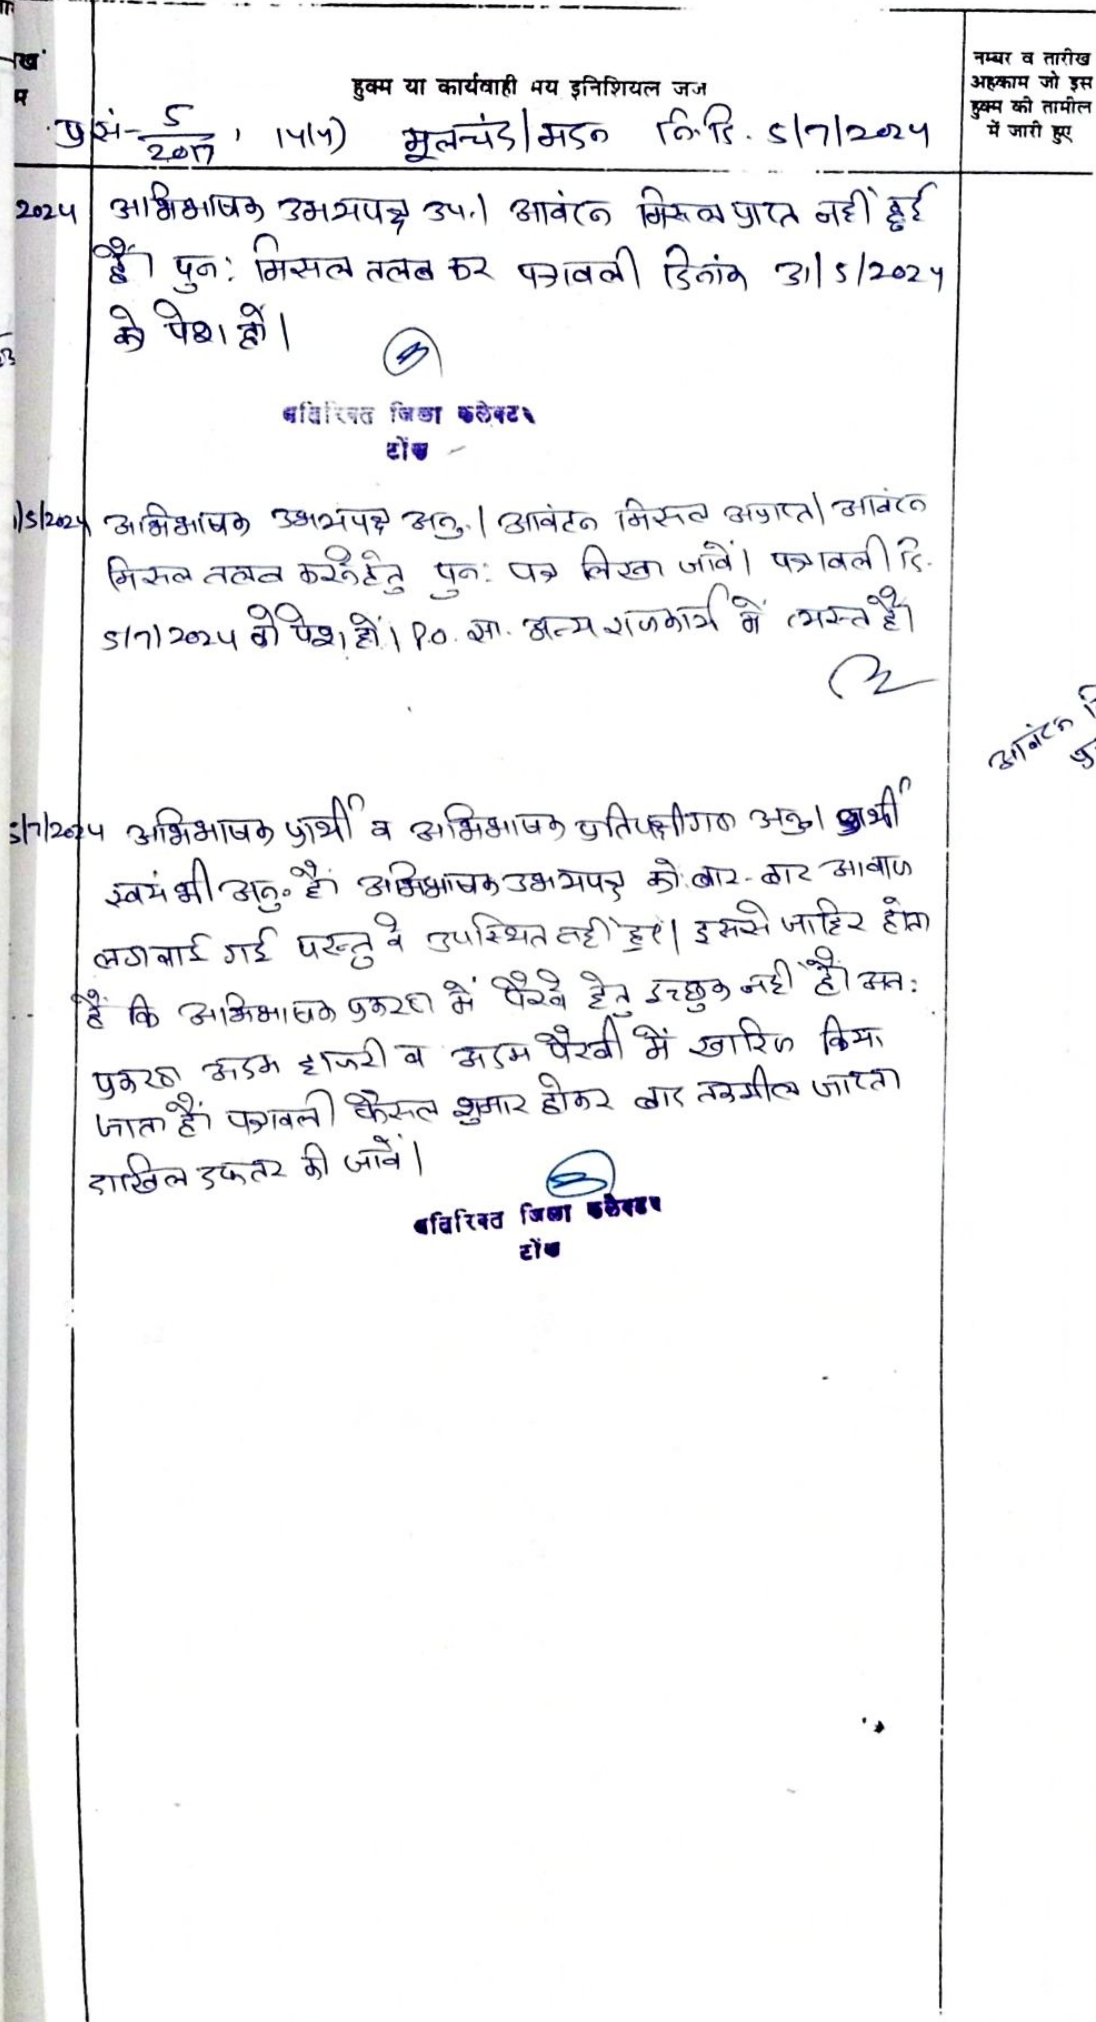 हुक्म या कार्यवाही मय इनिशियल जज
नम्बर व तारीख
अहकाम जो इस
हुक्म की तामील
में जारी हुए
प्र.सं- 5/2017, 14(4) मूलचंद/मदन नि.दि. 5/7/2024
2024 अभिभाषक उभयपक्ष उप.। आवंटन मिसल प्राप्त नहीं हुई
है। पुन: मिसल तलब कर पत्रावली दिनांक 31/5/2024
को पेश हों।
अतिरिक्त जिला कलेक्टर
टोंक
1/5/2024 अभिभाषक उभयपक्ष अनु.। आवंटन मिसल अप्राप्त। आवंटन
मिसल तलब करने हेतु पुन: पत्र लिखा जावें। पत्रावली दि.
5/7/2024 को पेश हों। P.O. सा. अन्य राजकार्य में व्यस्त है।
आवंटन
5/7/2024 अभिभाषक प्रार्थी व अभिभाषक प्रतिपक्षीगण अनु। प्रार्थी
स्वयं भी अनु. है। अभिभाषक उभयपक्ष को बार-बार आवाज
लगवाई गई परन्तु वे उपस्थित नहीं हुए। इससे जाहिर होता
है कि अभिभाषक प्रकरण में पैरवी हेतु इच्छुक नहीं है। अत:
प्रकरण अदम हाजरी व अदम पैरवी में खारिज किया
जाता है। पत्रावली फैसल शुमार होकर बाद तकमील जाप्ता
दाखिल दफ्तर की जावें।
अतिरिक्त जिला कलेक्टर
टोंक